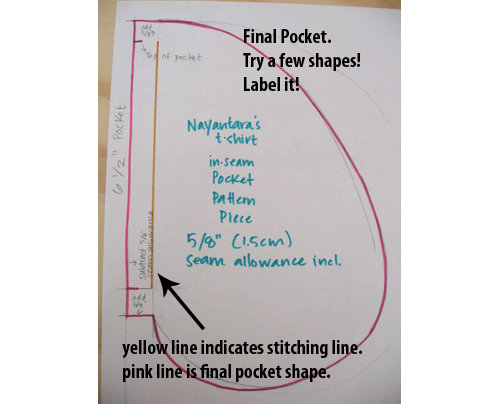 Final Pocket.
Try a few shapes!
Label it!
add
5/8"
Top of pocket
6 1/2" Pocket
Nayantara's
t-shirt
in-seam
Pocket
Pattern
Piece
5/8" (1.5cm)
Seam allowance incl.
subtract 5/8"
seam allowance
add
5/8"
yellow line indicates stitching line.
pink line is final pocket shape.